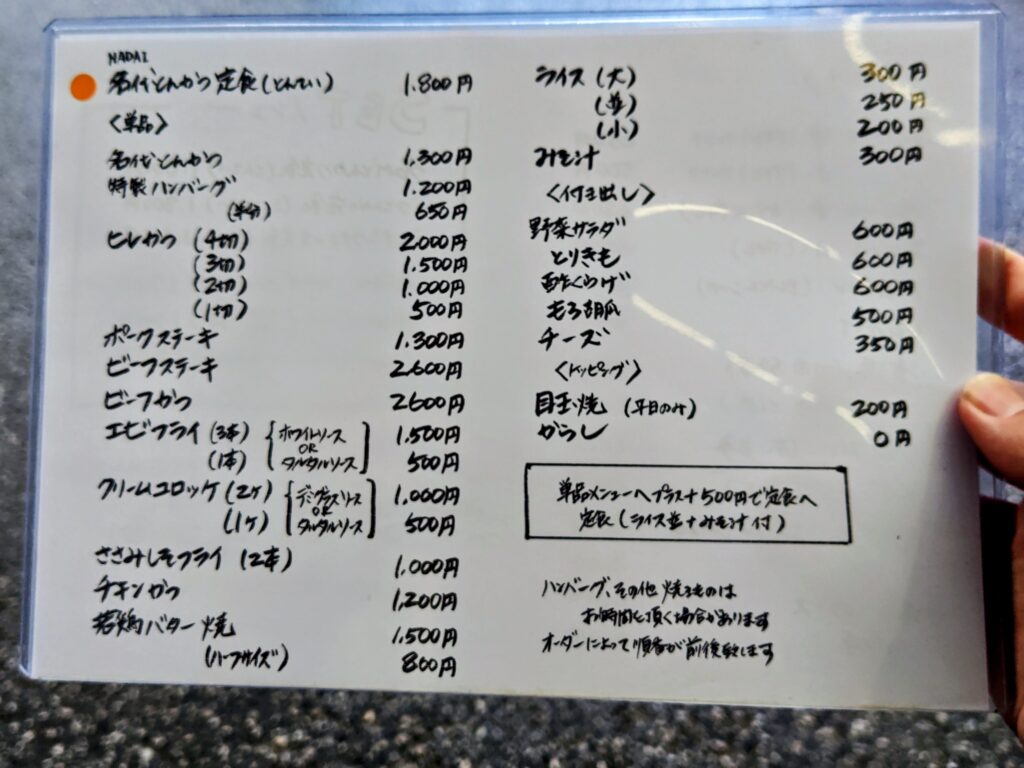 NADAI
名代とんかつ定食(とんてい) 1.800円
〈単品〉
名代とんかつ 1.300円
特製ハンバーグ 1.200円
(半分) 650円
ヒレかつ (4切) 2.000円
(3切) 1.500円
(2切) 1.000円
(1切) 500円
ポークステーキ 1.300円
ビーフステーキ 2600円
ビーフかつ 2600円
エビフライ (3本) ホワイトソース 1.500円
OR
(1本) タルタルソース 500円
クリームコロッケ (2ヶ) デミグラスソース 1.000円
OR
(1ヶ) タルタルソース 500円
ささみしそフライ (2本) 1.000円
チキンかつ 1,200円
若鶏バター焼 1,500円
(ハーフサイズ) 800円
ライス (大) 300円
(並) 250円
(小) 200円
みそ汁 300円
〈付き出し〉
野菜サラダ 600円
とりきも 600円
酢くらげ 600円
もろきゅう 500円
チーズ 350円
〈トッピング〉
目玉焼 (平日のみ) 200円
からし 0円
単品メニューへプラス+500円で定食へ
定食(ライス並+みそ汁付)
ハンバーグ、その他焼きものは
お時間を頂く場合があります
オーダーによって順番が前後致します